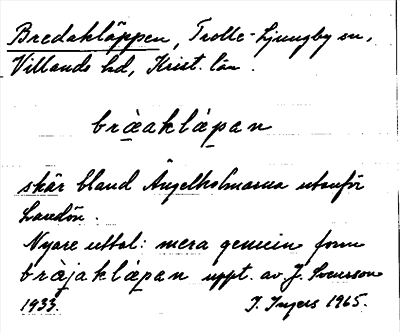 Bredakläppen, Trolle-Ljungby sn,
Villands hd, Krist. län.
bræ̀aklǽpan
skär bland Ängelholmarna utanför
Landön.
Nyare uttal: mera genuin form
bræ̀jaklǽpan uppt. av J. Svensson
1933. I. Ingers 1965.